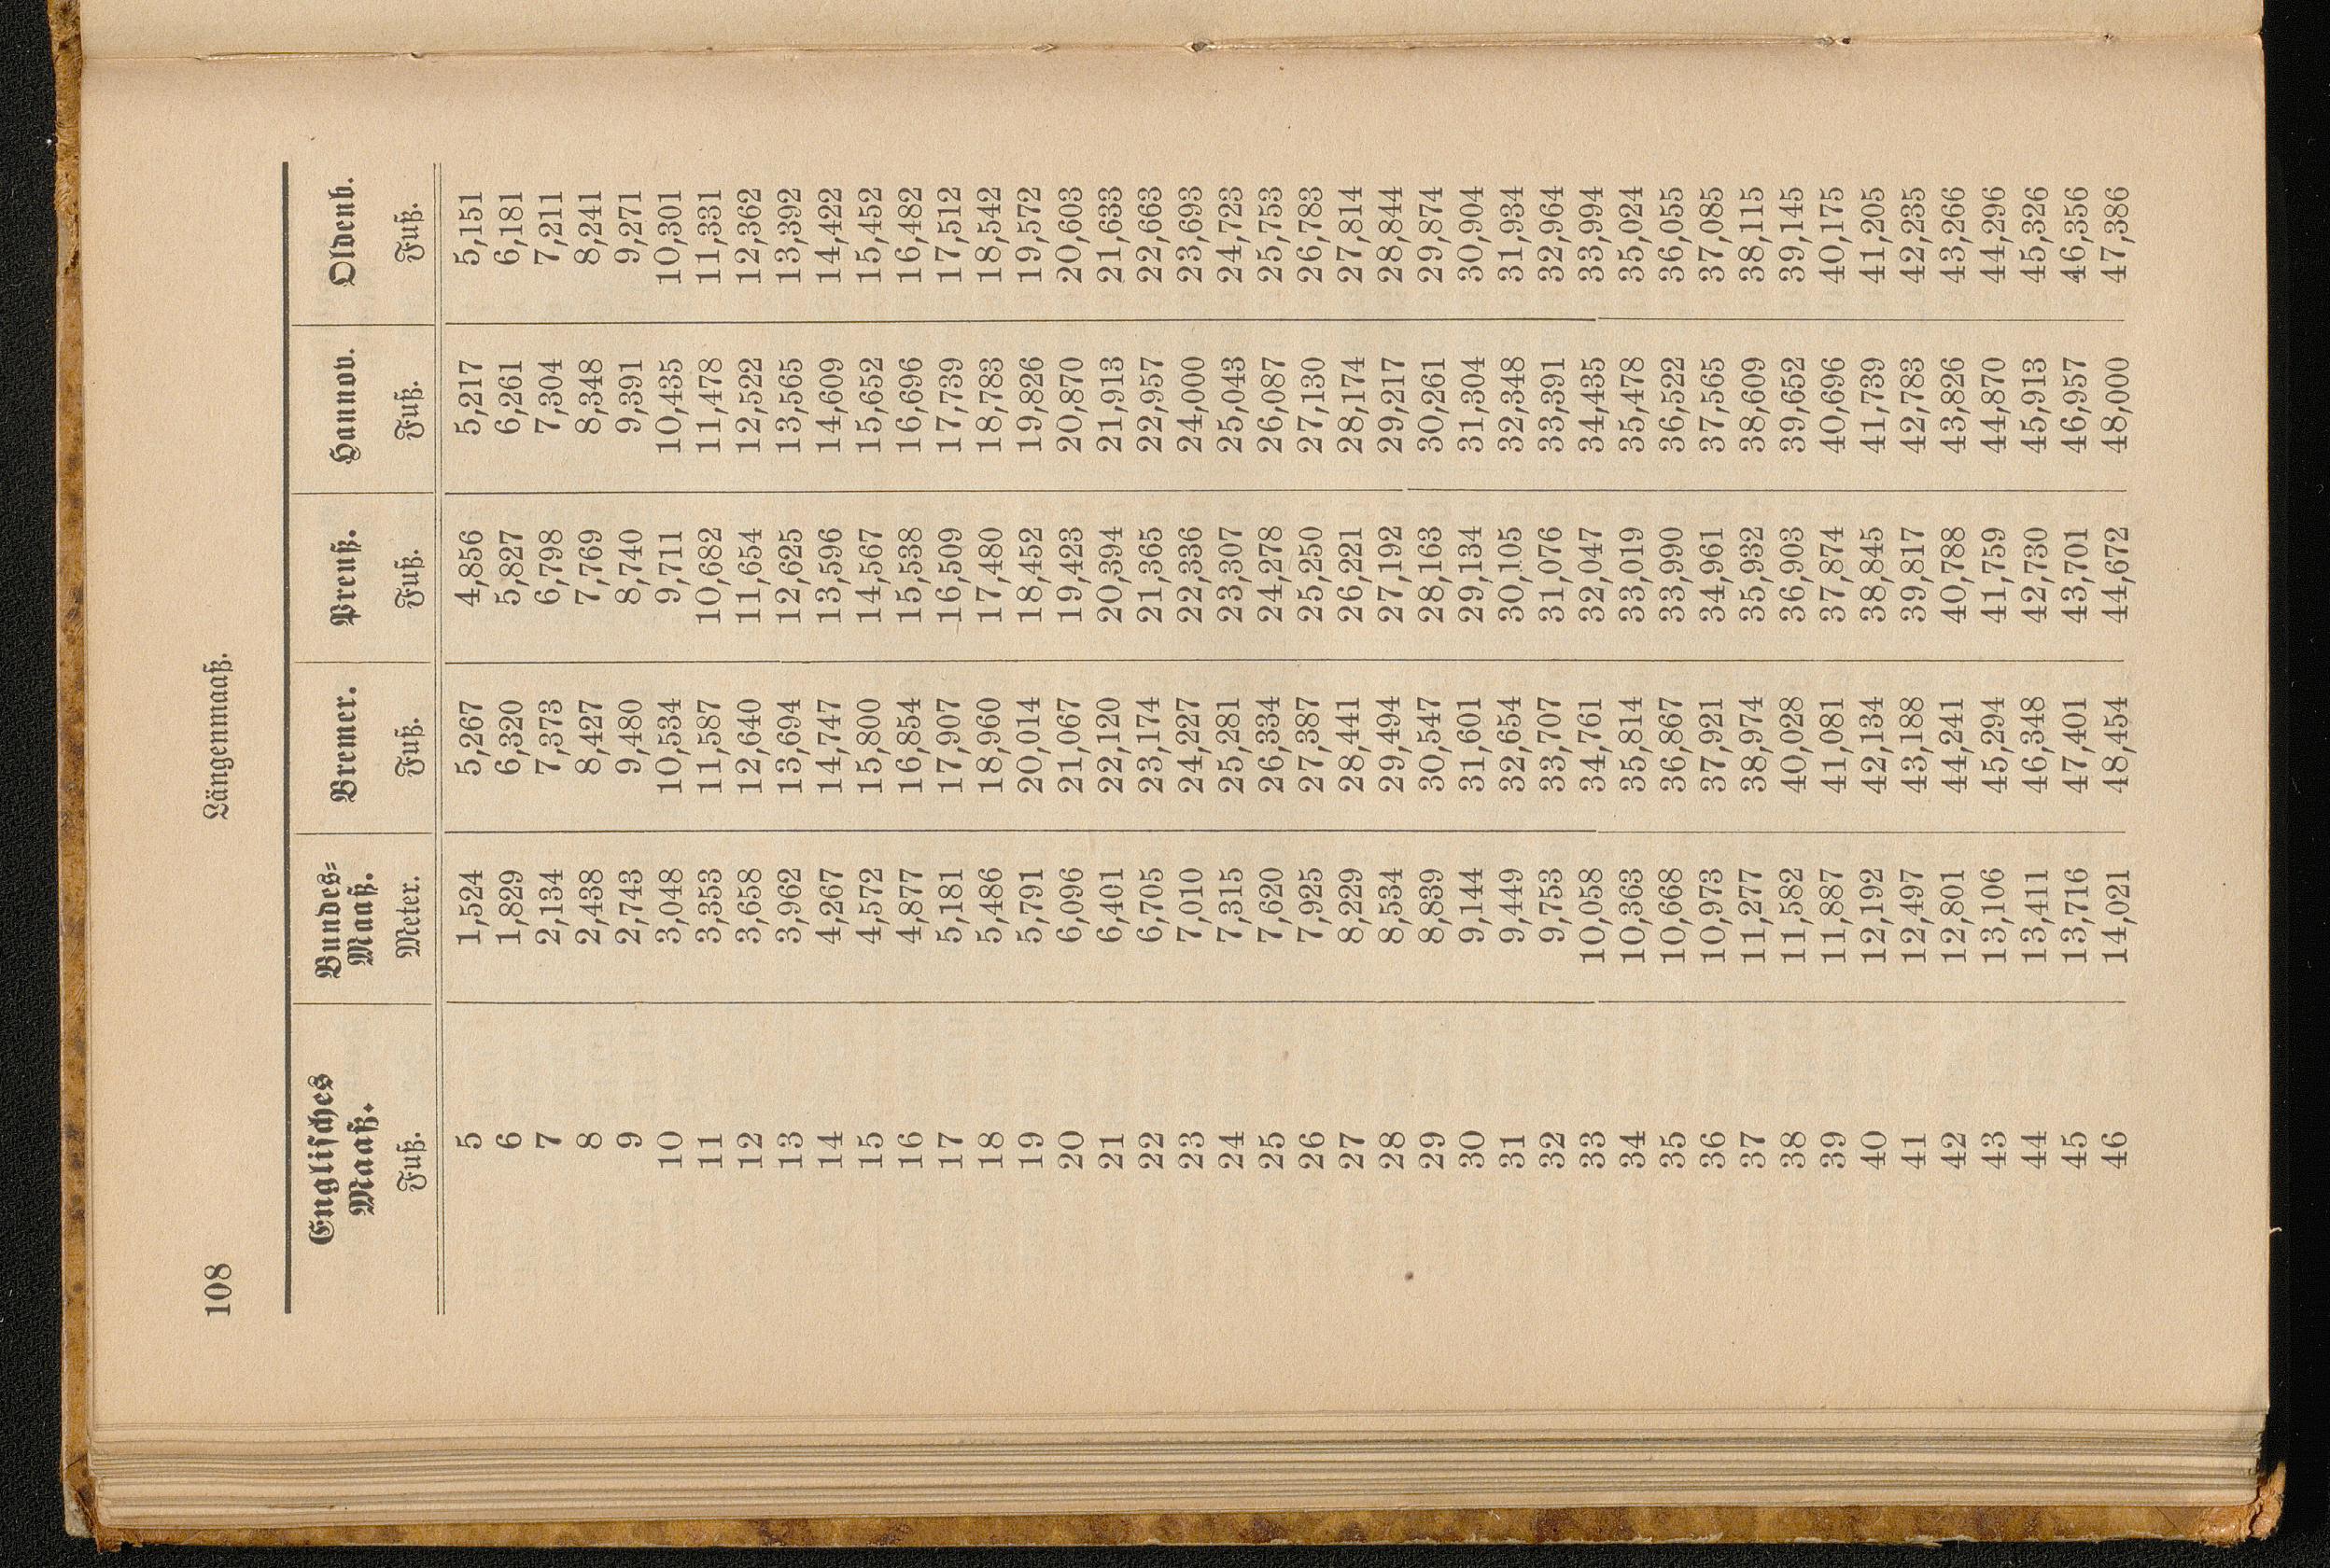 108
Längenmaaß.
Englisches Maaß. Bundes=Maaß. Bremer. Preuß. Hannov. Oldenb.
Fuß. Meter. Fuß. Fuß. Fuß. Fuß.
5 1,524 5,267 4,856 5,217 5,151
6 1,829 6,320 5,827 6,261 6,181
7 2,134 7,373 6,798 7,304 7,211
8 2,438 8,427 7,769 8,348 8,241
9 2,743 9,480 8,740 9,391 9,271
10 3,048 10,534 9,711 10,435 10,301
11 3,353 11,587 10,682 11,478 11,331
12 3,658 12,640 11,654 12,522 12,362
13 3,962 13,694 12,625 13,565 13,392
14 4,267 14,747 13,596 14,609 14,422
15 4,572 15,800 14,567 15,652 15,452
16 4,877 16,854 15,538 16,696 16,482
17 5,181 17,907 16,509 17,739 17,512
18 5,486 18,960 17,480 18,783 18,542
19 5,791 20,014 18,452 19,826 19,572
20 6,096 21,067 19,423 20,870 20,603
21 6,401 22,120 20,394 21,913 21,633
22 6,705 23,174 21,365 22,957 22,663
23 7,010 24,227 22,336 24,000 23,693
24 7,315 25,281 23,307 25,043 24,723
25 7,620 26,334 24,278 26,087 25,753
26 7,925 27,387 25,250 27,130 26,783
27 8,229 28,441 26,221 28,174 27,814
28 8,534 29,494 27,192 29,217 28,844
29 8,839 30,547 28,163 30,261 29,874
30 9,144 31,601 29,134 31,304 30,904
31 9,449 32,654 30,105 32,348 31,934
32 9,753 33,707 31,076 33,391 32,964
33 10,058 34,761 32,047 34,435 33,994
34 10,363 35,814 33,019 35,478 35,024
35 10,668 36,867 33,990 36,522 36,055
36 10,973 37,921 34,961 37,565 37,085
37 11,277 38,974 35,932 38,609 38,115
38 11,582 40,028 36,903 39,652 39,145
39 11,887 41,081 37,874 40,696 40,175
40 12,192 42,134 38,845 41,739 41,205
41 12,497 43,188 39,817 42,783 42,235
42 12,801 44,241 40,788 43,826 43,266
43 13,106 45,294 41,759 44,870 44,296
44 13,411 46,348 42,730 45,913 45,326
45 13,716 47,401 43,701 46,957 46,356
46 14,021 48,454 44,672 48,000 47,386